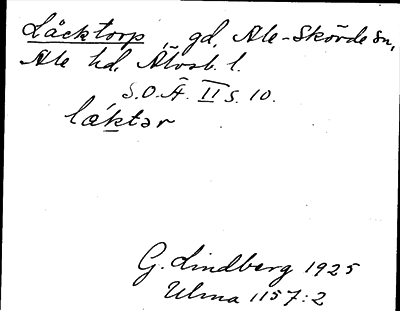 Läcktorp, gd, Ale-Skövde sn,
Ale hd, Älvsb. l.
S.O.Ä. II s. 10.
lák̲tər
G. Lindberg 1925
Ulma 1157:2